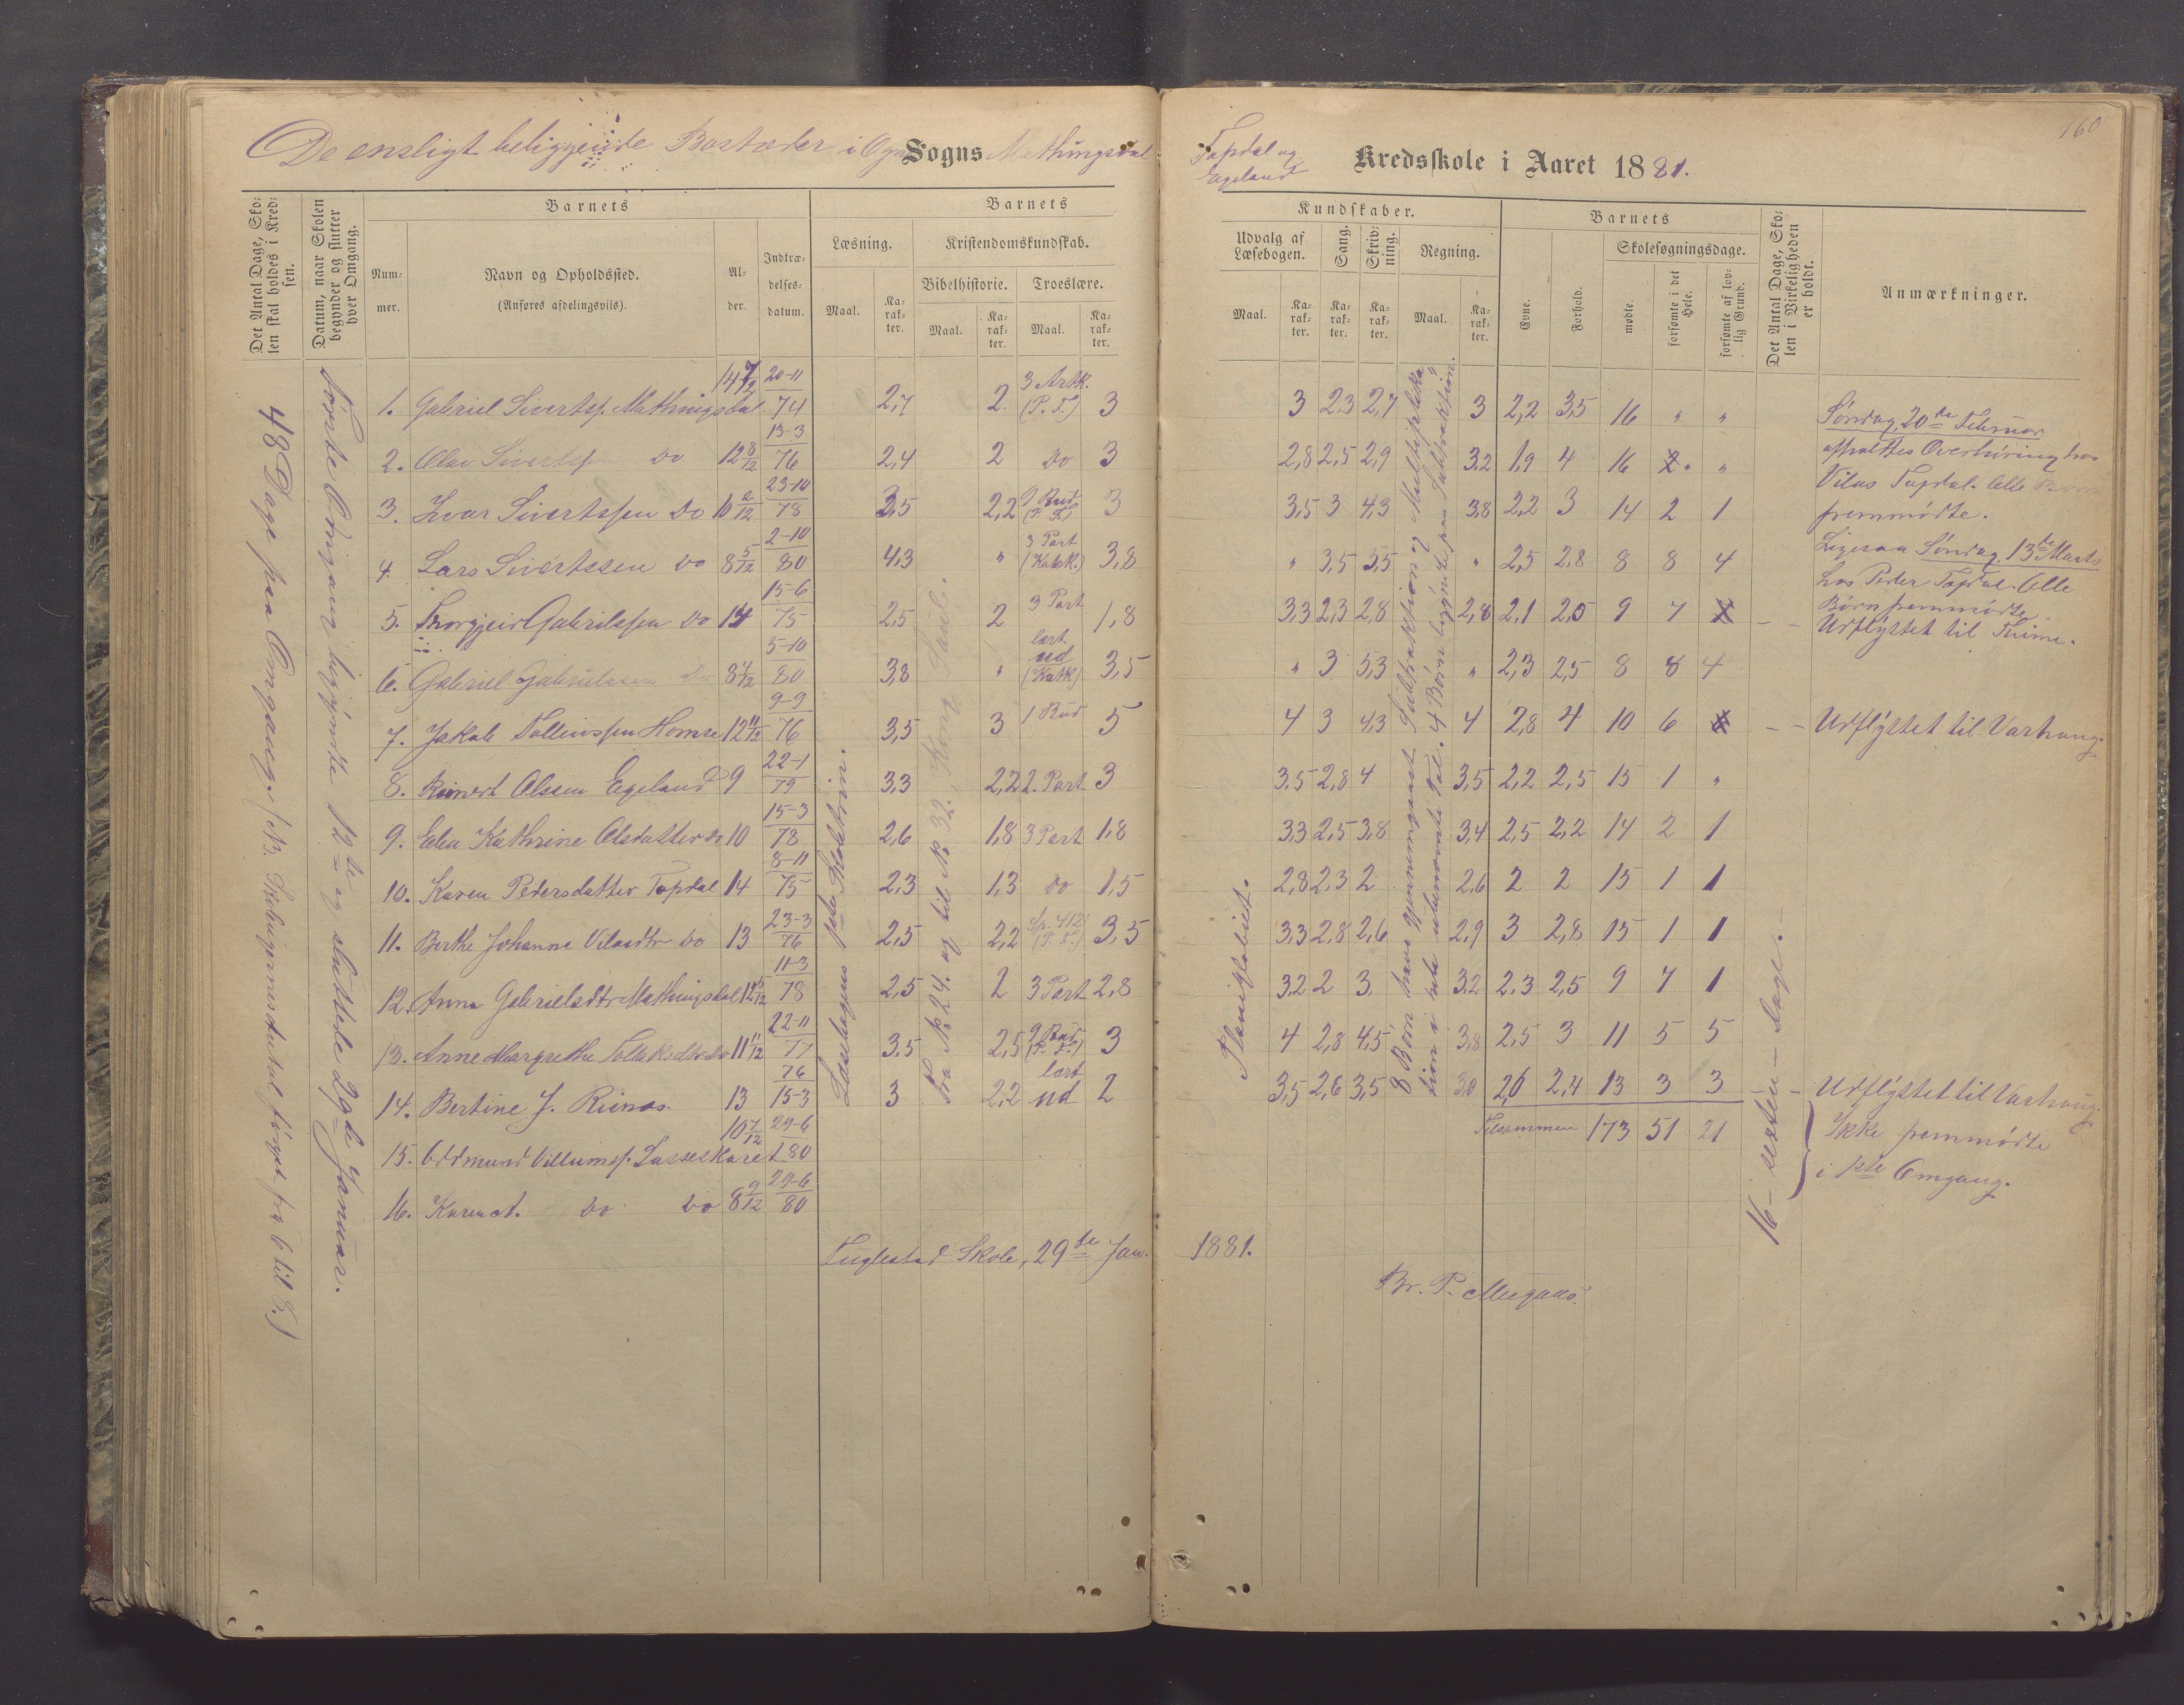 De ensligt beliggende Bosteder i Ogne Sogns Mathingsdal
Tapdal og
Egeland
Kredsskole i Aaret 1881.
160
Det Antal Dage, Sko-
len skal holdes i Kred-
sen.
Datum, naar Skolen
begynder og slutter
hver Omgang.
Barnets
Num-
mer.
Navn og Opholdssted.
(Anføres afdelingsviis).
Al-
der.
Indtræ-
delses-
datum.
Barnets
Læsning.
Maal.
Ka-
rak-
ter.
Kristendomskundskab.
Bibelhistorie.
Maal.
Ka-
rak-
ter.
Troeslære.
Maal.
Ka-
rak-
ter.
Kundskaber.
Udvalg af
Læsebogen.
Maal.
Ka-
rak-
ter.
Sang.
Ka-
rak-
ter.
Skriv-
ning.
Ka-
rak-
ter.
Regning.
Maal.
Ka-
rak-
ter.
Barnets
Evne.
Forhold.
Skolesøgningsdage.
mødte.
forsømte i det
Hele.
forsømte af lov-
lig Grund.
Det Antal Dage, Sko-
len i Virkeligheden
er holdt.
Anmærkninger.
48 Dage paa Omgang.
Første Omgang begyndte 12te og sluttede 29de Januar.
1. Gabriel Sivertsp. Mathingsdal 14 7/12 20-11 74 2,7 2 3 Artk. (P. F.) 3 3 2,3 2,7 3 2,2 3,5 16 " "
2. Olav Sivertspen Do 12 8/12 13-3 76 2,4 2 Do 3 2,8 2,5 2,9 3,2 1,9 4 16 " "
3. Ivar Sivertspen Do 10 2/12 23-10 78 3,5 2,2 9 Bud (P. F.) 3 3,5 3 4,3 3,8 2,2 3 14 2 1
4. Lars Sivertssen Do 8 5/12 2-10 80 4,3 " 3 Part (Katk.) 3,8 " 3,5 5,5 " 2,5 2,8 8 8 4
5. Thorgjeir Gabrielspen Do 14 15-6 75 2,5 2 3 Part 1,8 3,3 2,3 2,8 2,8 2,1 2,0 9 7
6. Gabriel Gabrielssen Do 8 4/12 5-10 80 3,8 " lært ud (Katk) 3,5 " 3 5,3 " 2,3 2,5 8 8 4
7. Jakob Tolleivspen Homse 12 11/12 9-9 76 3,5 3 1 Bud 5 4 3 4,3 4 2,8 4 10 6
8. Reinert Olssen Egeland 9 22-1 79 3,3 2,2 2. Part 3 3,5 2,8 4 3,5 2,2 2,5 15 1 "
9. Elen Kathrine Olsdatter Do 10 15-3 78 2,6 1,8 3 Part 1,8 3,3 2,5 3,8 3,4 2,5 2,2 14 2 1
10. Karen Pedersdatter Tapdal 14 8-11 75 2,3 1,3 Do 1,5 2,8 2,3 2 2,6 2 2 15 1 1
11. Berthe Johanne Vilasdtr Do 13 23-3 76 2,5 2,2 Sp. 412 (P. F.) 3,5 3,3 2,8 2,6 2,9 3 2,8 15 1 1
12. Anna Gabrielsdtr Mathingsdal 12 5/12 11-3 78 2,5 2 3 Part 2,8 3,2 2 3, 3,2 2,3 2,5 9 7 1
13. Anne Margrethe Tollaksdtr Do 11 11/12 22-11 77 3,5 2,5 9 Bud (P. F.) 3 4 2,8 4,5 3,8 2,5 3 11 5 5
14. Bertine J. Rinas. 13 76 15-3 3 2,2 lært ud 2 3,5 2,6 3,5 3,0 2,6 2,4 13 3 3
Tilsammen 173 51 21
15. Oddmund Villumsp. Lasseskaret 10 7/12 29-6 80
16. Karen A. Do Do 8 9/12 29-6 80
Læsebogens 1ste Skoletrin.
Fra No 24. og til No 32. Kong Saul.
Planigloberet.
8 Børn have gjennemgaaet Subtraktion og Multiplika
tion i hele ubenævnte Tal. 4 Børn begyndte paa Subtraktion.
16 - sexten - Dage.
Søndag, 20de Februar
afholdtes Overhøring hos
Vilas Tapdal. Alle Børn
fremmødte.
Ligesaa Søndag, 13de Marts
hos Peder Tapdal. Alle
Børn fremmødte
Udflyttet til Thime.
Udflyttet til Varhaug.
Udflyttet til Varhaug.
Ikke fremmødte
i 1ste Omgang.
Fuglestad Skole, 29de Jan. 1881.
Br. P.